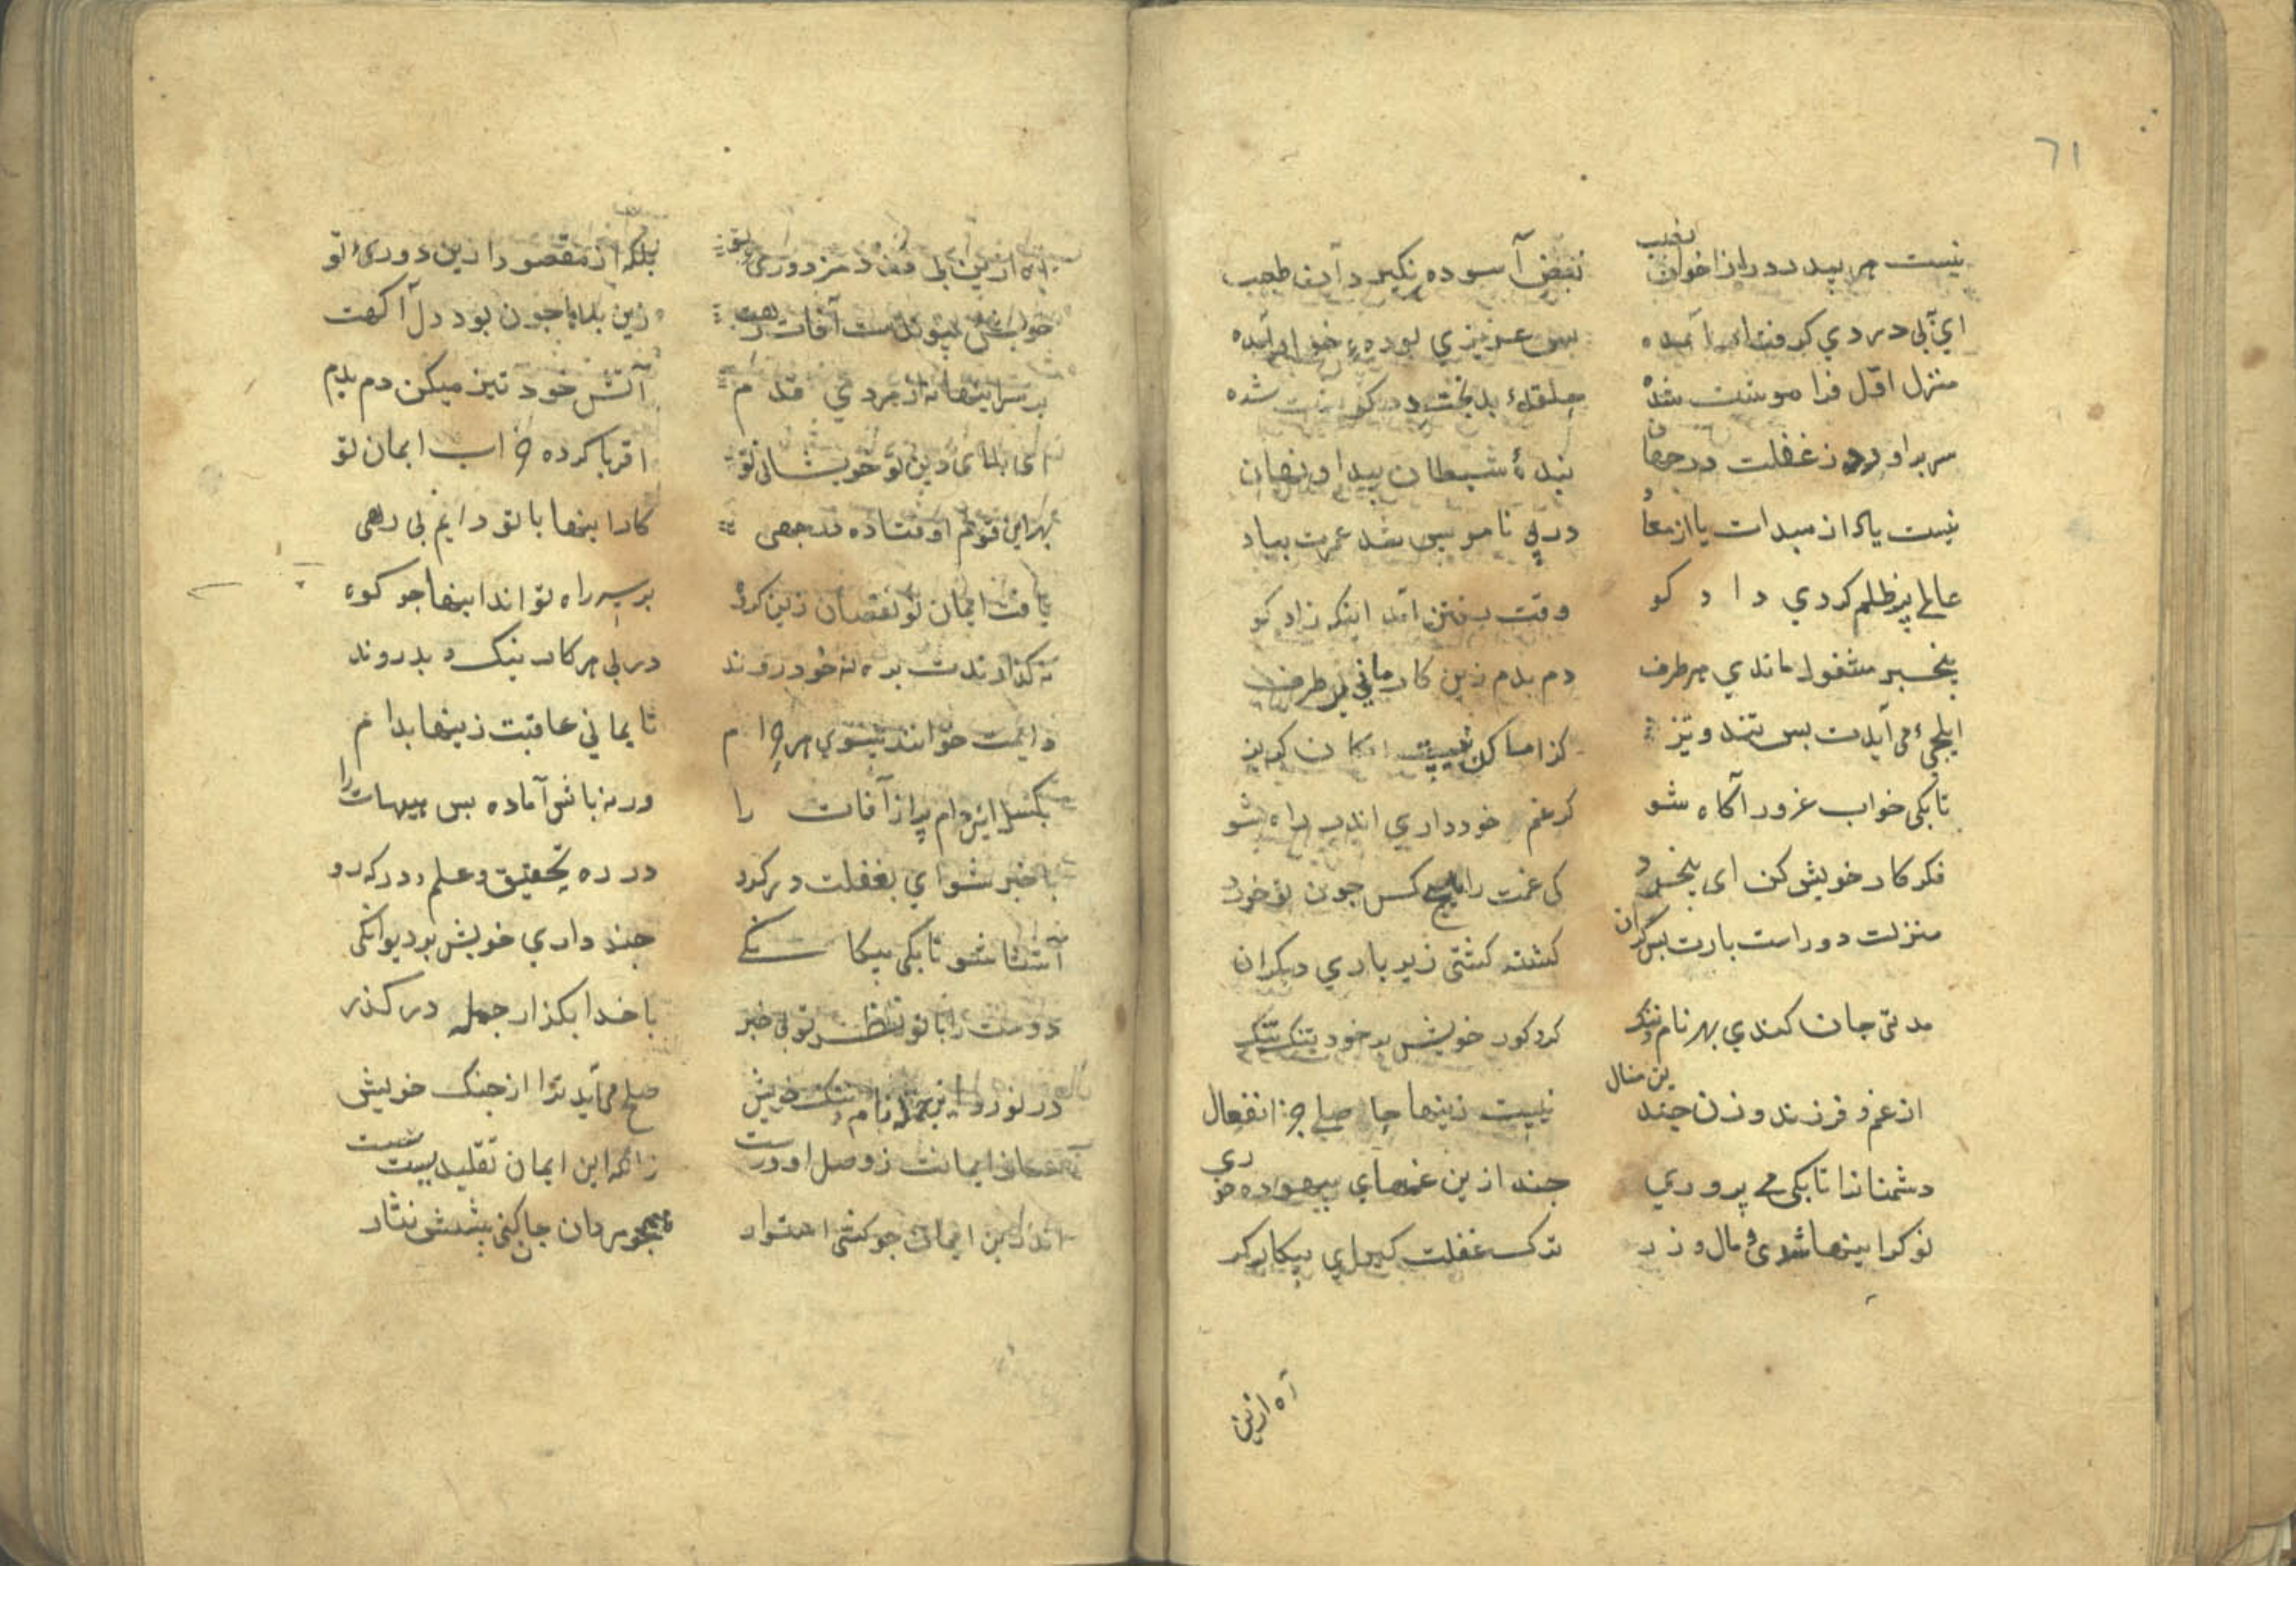 ٦١
نیست هر بیدرد را زاخوان نصیب نبض آسوده نکیرد آن طبیب
ای بی دردی کرفتار آمده بس عزیزی بوده خوار آمده
منزل اول فراموشت شده
سر براورده ز غفلت در جهان بندهٔ شیطان پیدا و نهان
نیست یادت از مبدات یا از معاد در پی ناموس شد عمرت بباد
عالمی پر ظلم کردی داد کو وقت رفتن آمد اینک زاد کو
بیخبر مشغول ماندی هر طرف دم بدم زین کار مانی بر طرف
ایلچیٔ می آیدت بس تند و تیز کز امساکن نیست امکان کریز
تا بکی خواب غرور آکاه شو کر غم خود داری اندر راه شو
فکر کار خویش کن ای بیخرد کی غمت را هیچ کس چون تو خورد
منزلت دور است بارت بس کران کشته کشتی زیر باری دیکران
مدتی جان کندی بهر نام و ننک کرد کور خویش بر خود تنک تنک
از غم و فرزند و زن چندین منال نیست زینها حاصلی جز انفعال
دشمنانرا تا بکی می پروری چند ازین غمهای بیهوده خوری
نو کر اینها شدی و مال و زر ترک غفلت کیر ای بیکار کر
آه ازین
آه ازین بی مزد مزدوری تو بلکه از مقصود ازین دوری تو
خویش پیوندست آفات رهت زین بلاها چون بود دل آکهت
بر سر اینها نه از مردی قدم آتش خود تیز میکن دم بدم
ای بلای دین تو خویشان تو اقربا کرده خراب ایمان تو
بهر این قوم اوفتاده در چهی کار اینها با تو دایم بی رهی
یافت ایمان تو نقصان زین کروه بر سر راه تو اند اینها چو کوه
نه کذارندت بره نه خود روند در پی هر کار نیک و بد روند
دایمت خوانند سوی هر حرام تا بمانی عاقبت زینها بدام
بکسل این دام پر از آفات را ورنه باش آماده بس هیهات را
با خبر شو ای بغفلت در کرو در ره تحقیق و علم درکه رو
آشنا شو تا بکی بیکانکی چند داری خویش بر دیوانکی
دوست را با تو نظر تو بی خبر با خدا بکذار جمله در کذر
در نورد این جمله نام و ننک خویش صلح می آید ترا از جنک خویش
زانکه این ایمان تقلیدیست سست
اندرین ایمان چو کشتی استوار همچو مردان جان کنی پیشش نثار